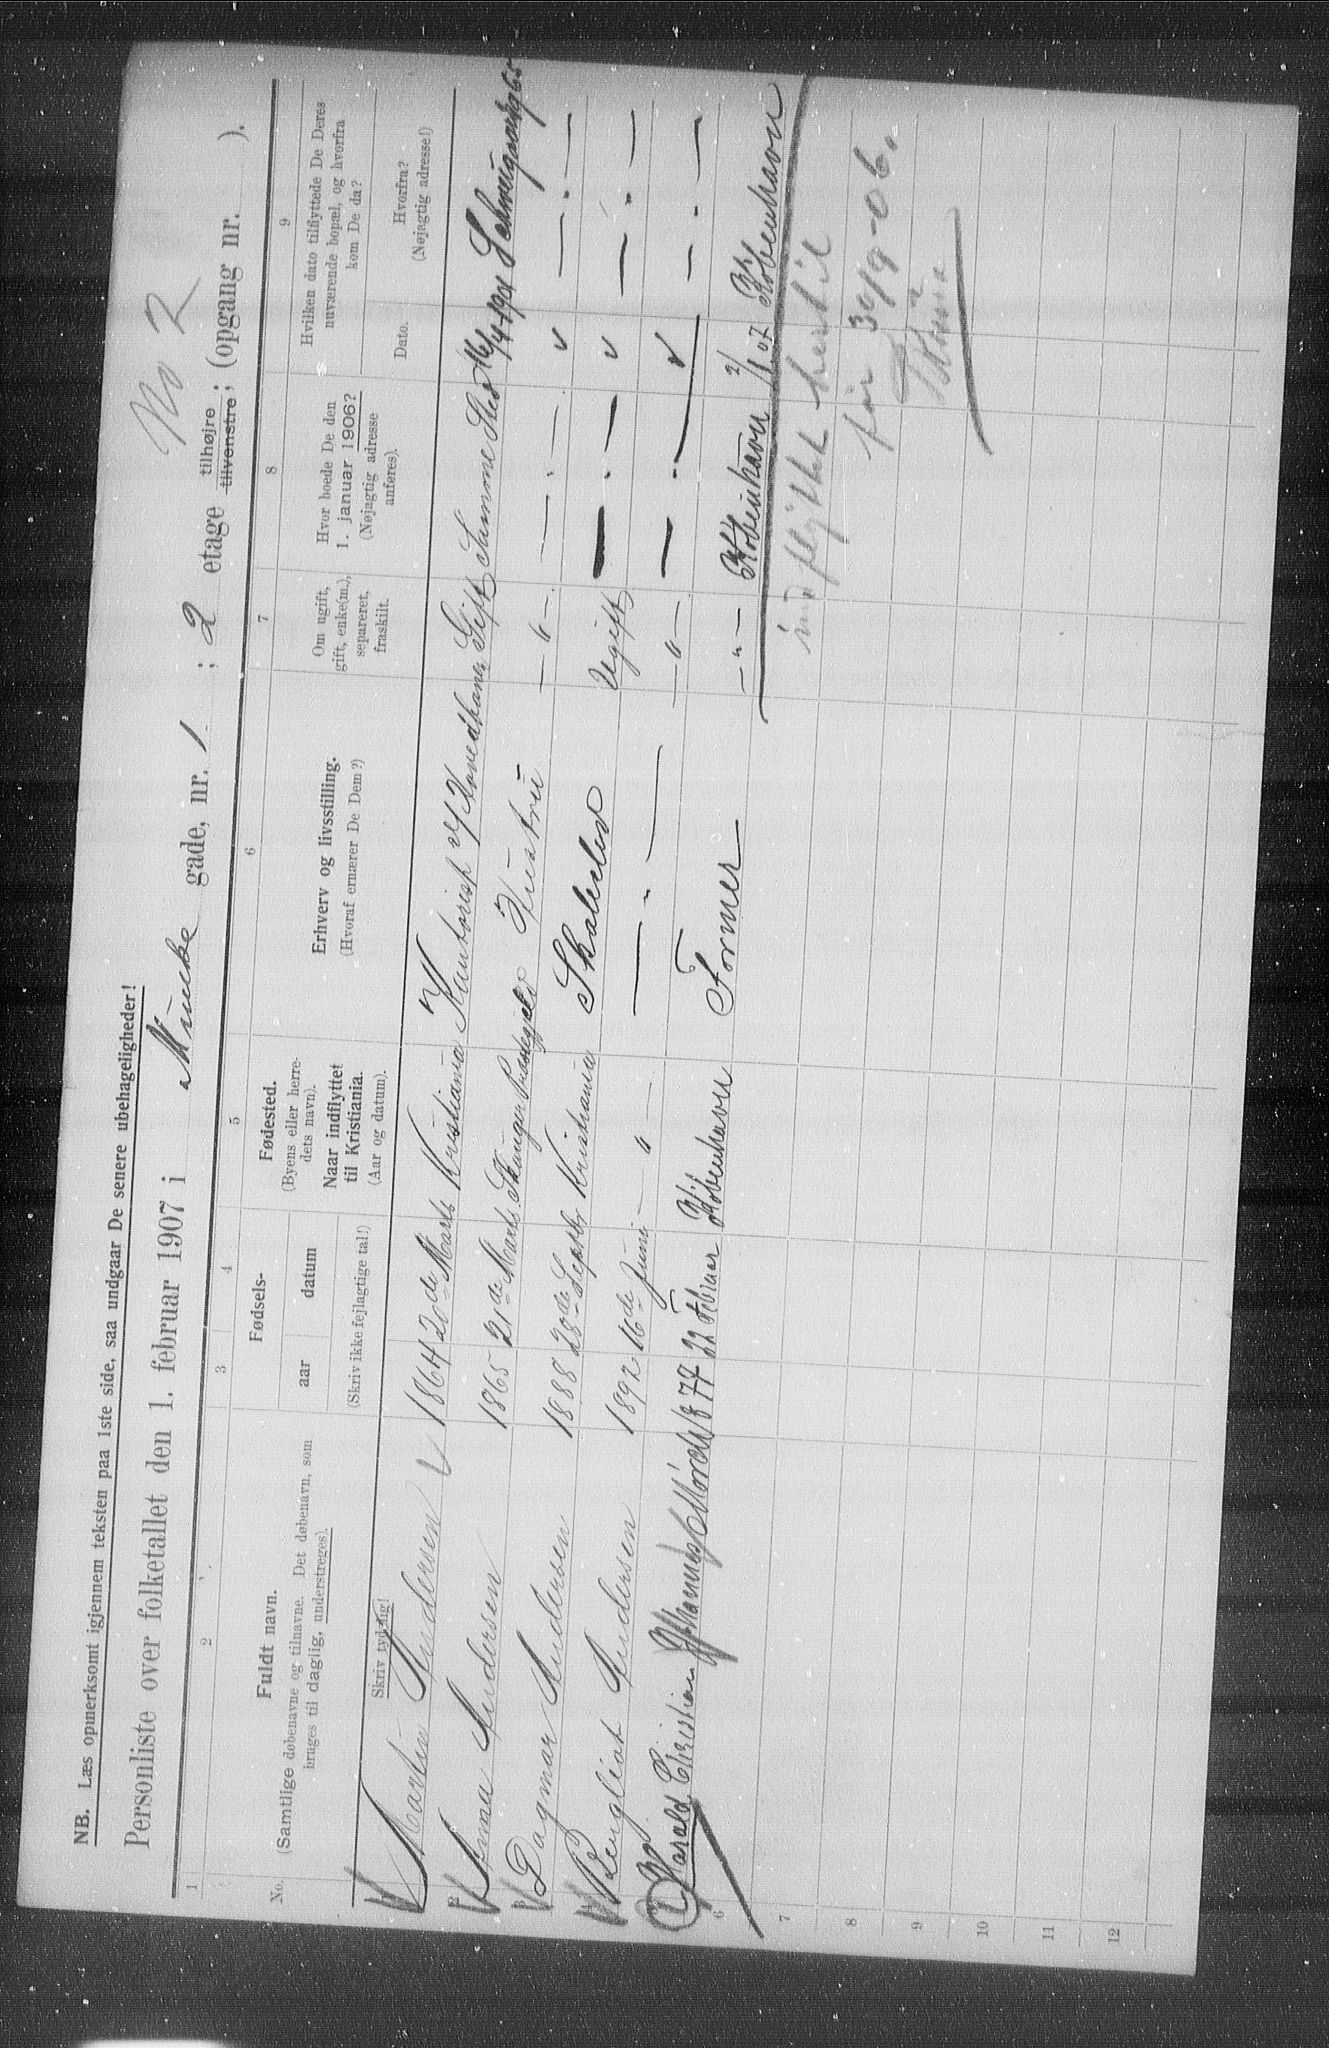 NB. Læs opmerksomt igjennem teksten paa 1ste side, saa undgaar De senere ubehageligheder!
Personliste over folketallet den 1. februar 1907 i Munke gade, nr. 1 ; 2 etage tilhøjre tilvenstre ; (opgang nr. ).
No 2
1 2 3 4 5 6 7 8 9
No.
Fuldt navn.
(Samtlige døbenavne og tilnavne. Det døbenavn, som
bruges til daglig, understreges).
Skriv tydelig!
Fødsels-
aar datum
(Skriv ikke fejlagtige tal!)
Fødested.
(Byens eller herre-
dets navn).
Naar indflyttet
til Kristiania.
(Aar og datum).
Erhverv og livsstilling.
(Hvoraf ernærer De Dem?)
Om ugift,
gift, enke(m.),
separeret,
fraskilt.
Hvor boede De den
1. januar 1906?
(Nøjagtig adresse
anføres).
Hvilken dato tilflyttede De Deres
nuværende bopæl, og hvorfra
kom De da?
Dato.
Hvorfra?
(Nøjagtig adresse!)
Martin Andersen 1864 20de Marts Kristiania Kontorist Gift Samme Sted 16/4 1901
2 Anna Andersen 1865 21de Marts Hustru — " — — . — v — . —
3 Dagmar Andersen 1888 28de Septbr Kristiania Ugift — . — v — . —
4 Andersen 1892 16de Juni — " — — . — — " — — . — v — . —
Harald Christian Johannes 1877 22 Februar København Former — " — København 2/1 07 København
6
7
8
9
10
11
12
ind flyttet hertil
før 30/9-06.